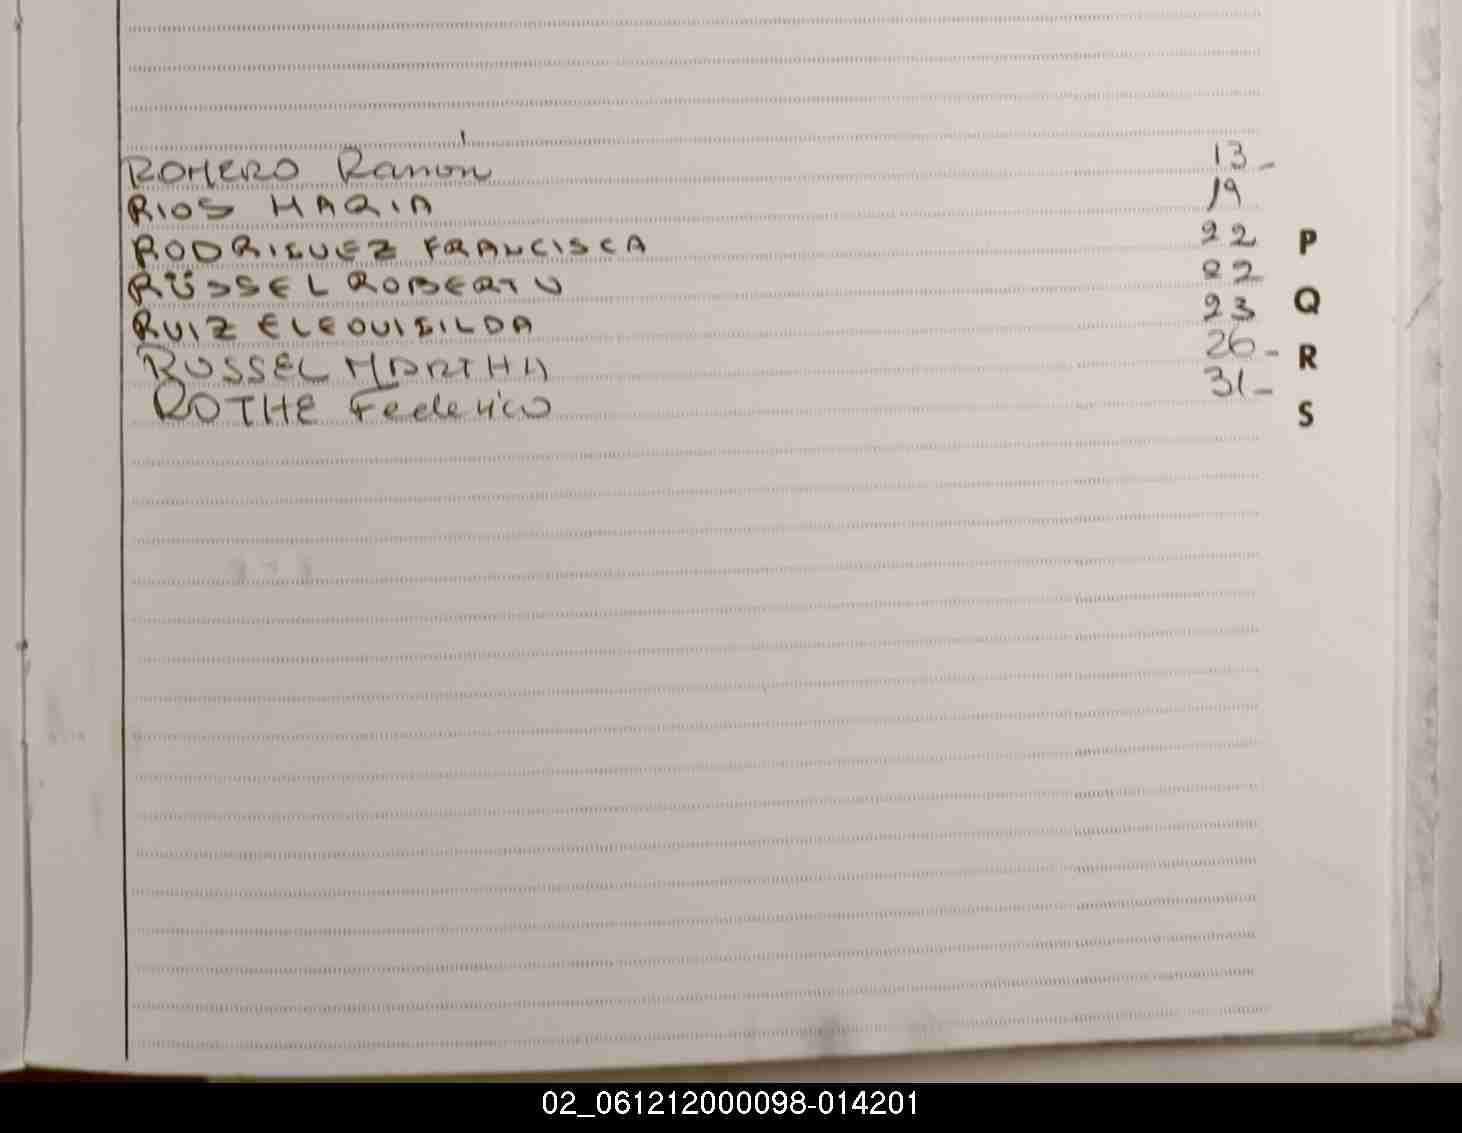 ROMERO Ramón 13-
RIOS MARIA 19
RODRIGUEZ FRANCISCA 22 P
RÜSSEL ROBERTO 22
RUIZ ELEOUIGILDA 23 Q
RUSSEL MARTHA 26- R
ROTHE Federico 31-
S
02_061212000098-014201